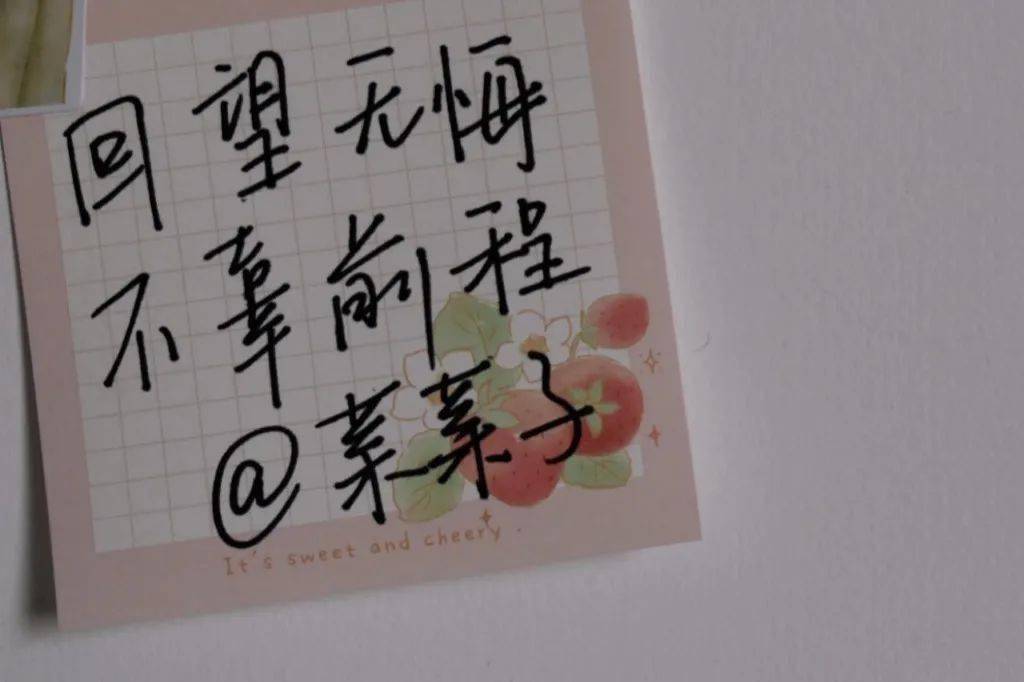 回望无悔
不辜前程
@菜菜子
It's sweet and cheery.